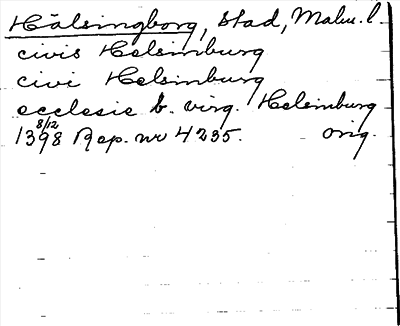 Hälsingborg, stad, Malm. l.
civis Helsinburg
civi Helsinburg
ecclesie b. virg. Helsinburg
1398 8/12 Rep. nr 4235. orig.